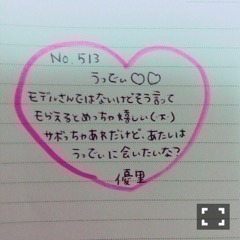 No. 513
うってぃ♡♡
モデルさんではないけどそう言って
もらえるとめっちゃ嬉しい(д)
サボっちゃあれだけど、あたしは
うってぃに会いたいな?
優里